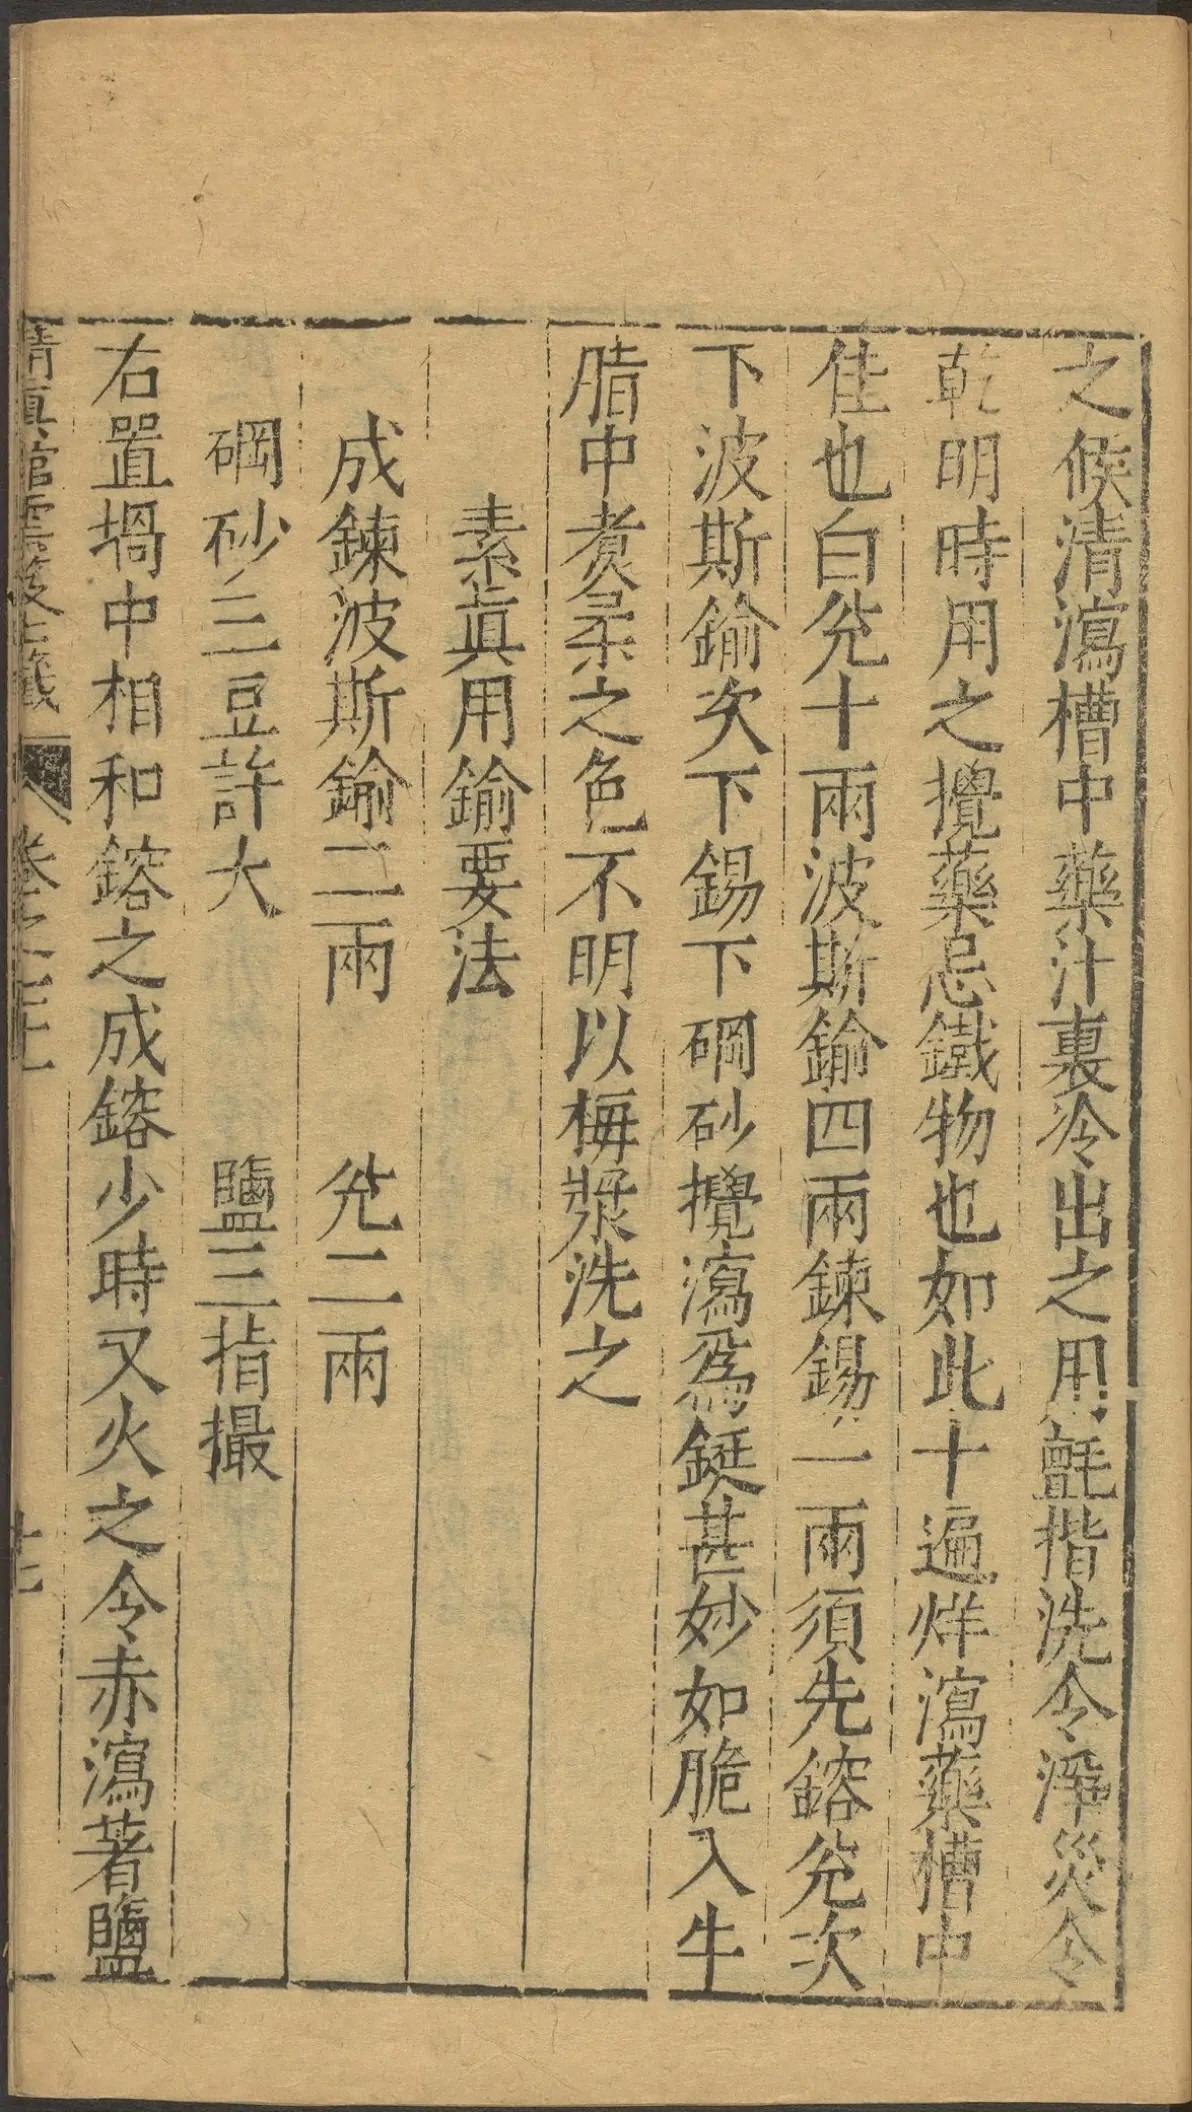 之候清瀉槽中藥汁裏冷出之用氈揩洗令淨災令
乾明時用之攪藥忌鐵物也如此十遍烊瀉藥槽中
佳也白灮十兩波斯鍮四兩鍊錫一兩須先鎔灮次
下波斯鍮次下錫下碙砂攪瀉爲鋌甚妙如脆入牛
脂中煮柔之色不明以梅漿洗之
素眞用鍮要法
成鍊波斯鍮二兩 灮二兩
碙砂三豆許大 鹽三指撮
右置堝中相和鎔之成鎔少時又火之令赤瀉著鹽
清眞館雲笈七籤 卷之七十一 廿七